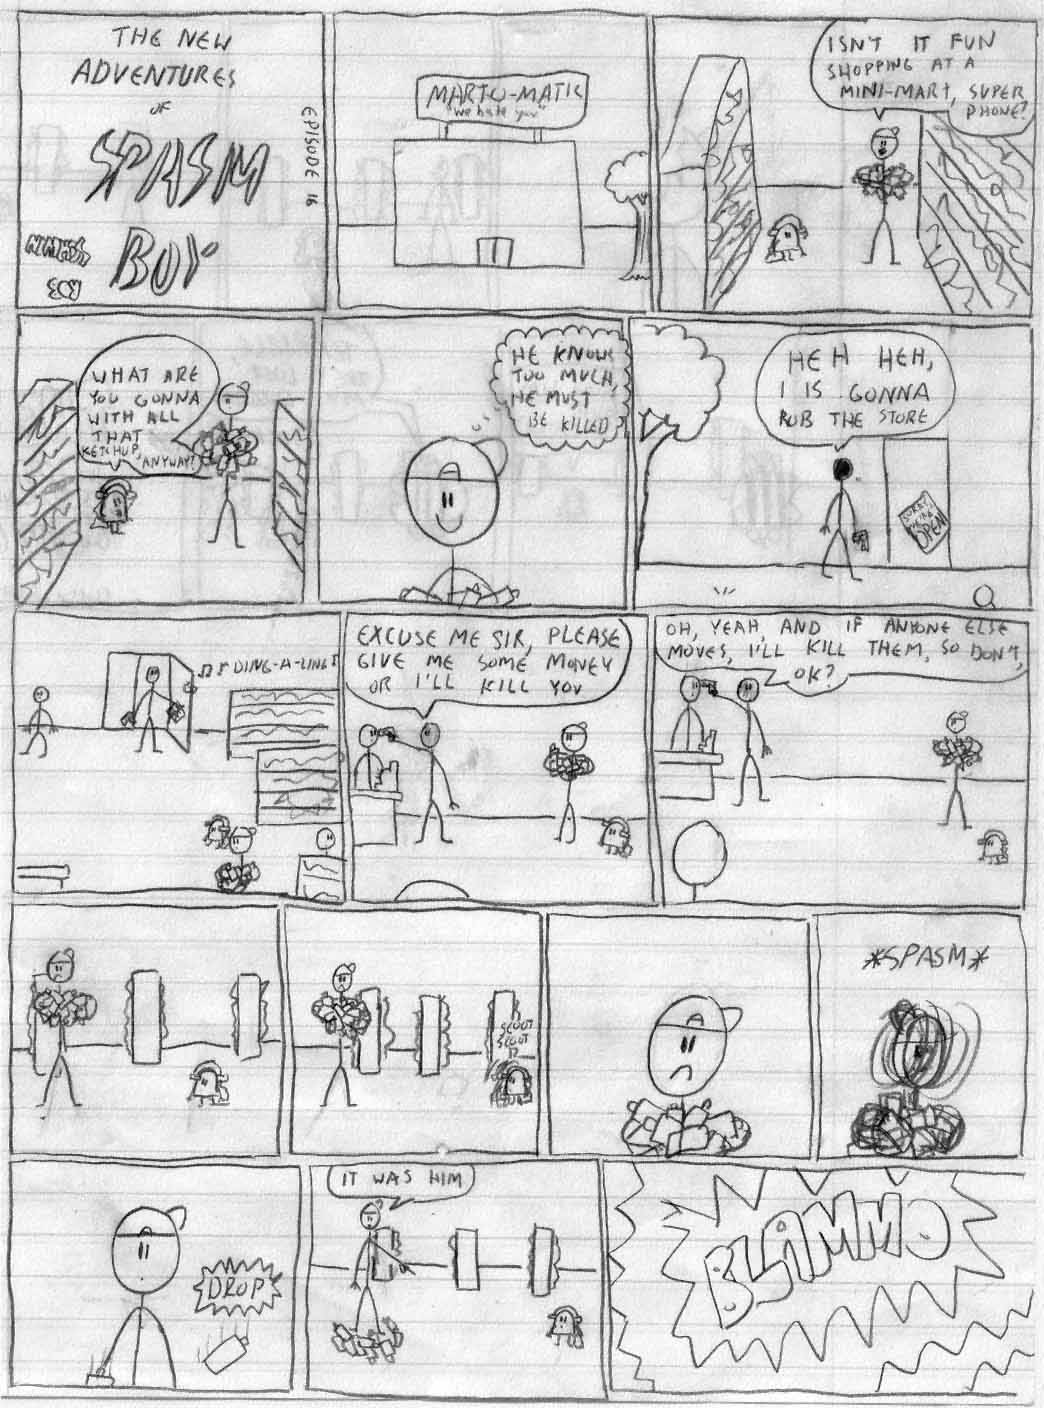 THE NEW
ADVENTURES
OF
SPASM
BOY
EPISODE 16
MART-O-MATIC
"We hate you"
ISN'T IT FUN
SHOPPING AT A
MINI-MART, SUPER
PHONE?
WHAT ARE
YOU GONNA
WITH ALL
THAT
KETCHUP,
ANYWAY?
HE KNOWS
TOO MUCH,
HE MUST
BE KILLED
HEH HEH,
I IS GONNA
ROB THE STORE
SORRY,
WE'RE
OPEN
DING-A-LING
EXCUSE ME SIR, PLEASE
GIVE ME SOME MONEY
OR I'LL KILL YOU
OH, YEAH, AND IF ANYONE ELSE
MOVES, I'LL KILL THEM, SO DON'T,
OK?
SCOOT
SCOOT
*SPASM*
DROP
IT WAS HIM
BLAMMO